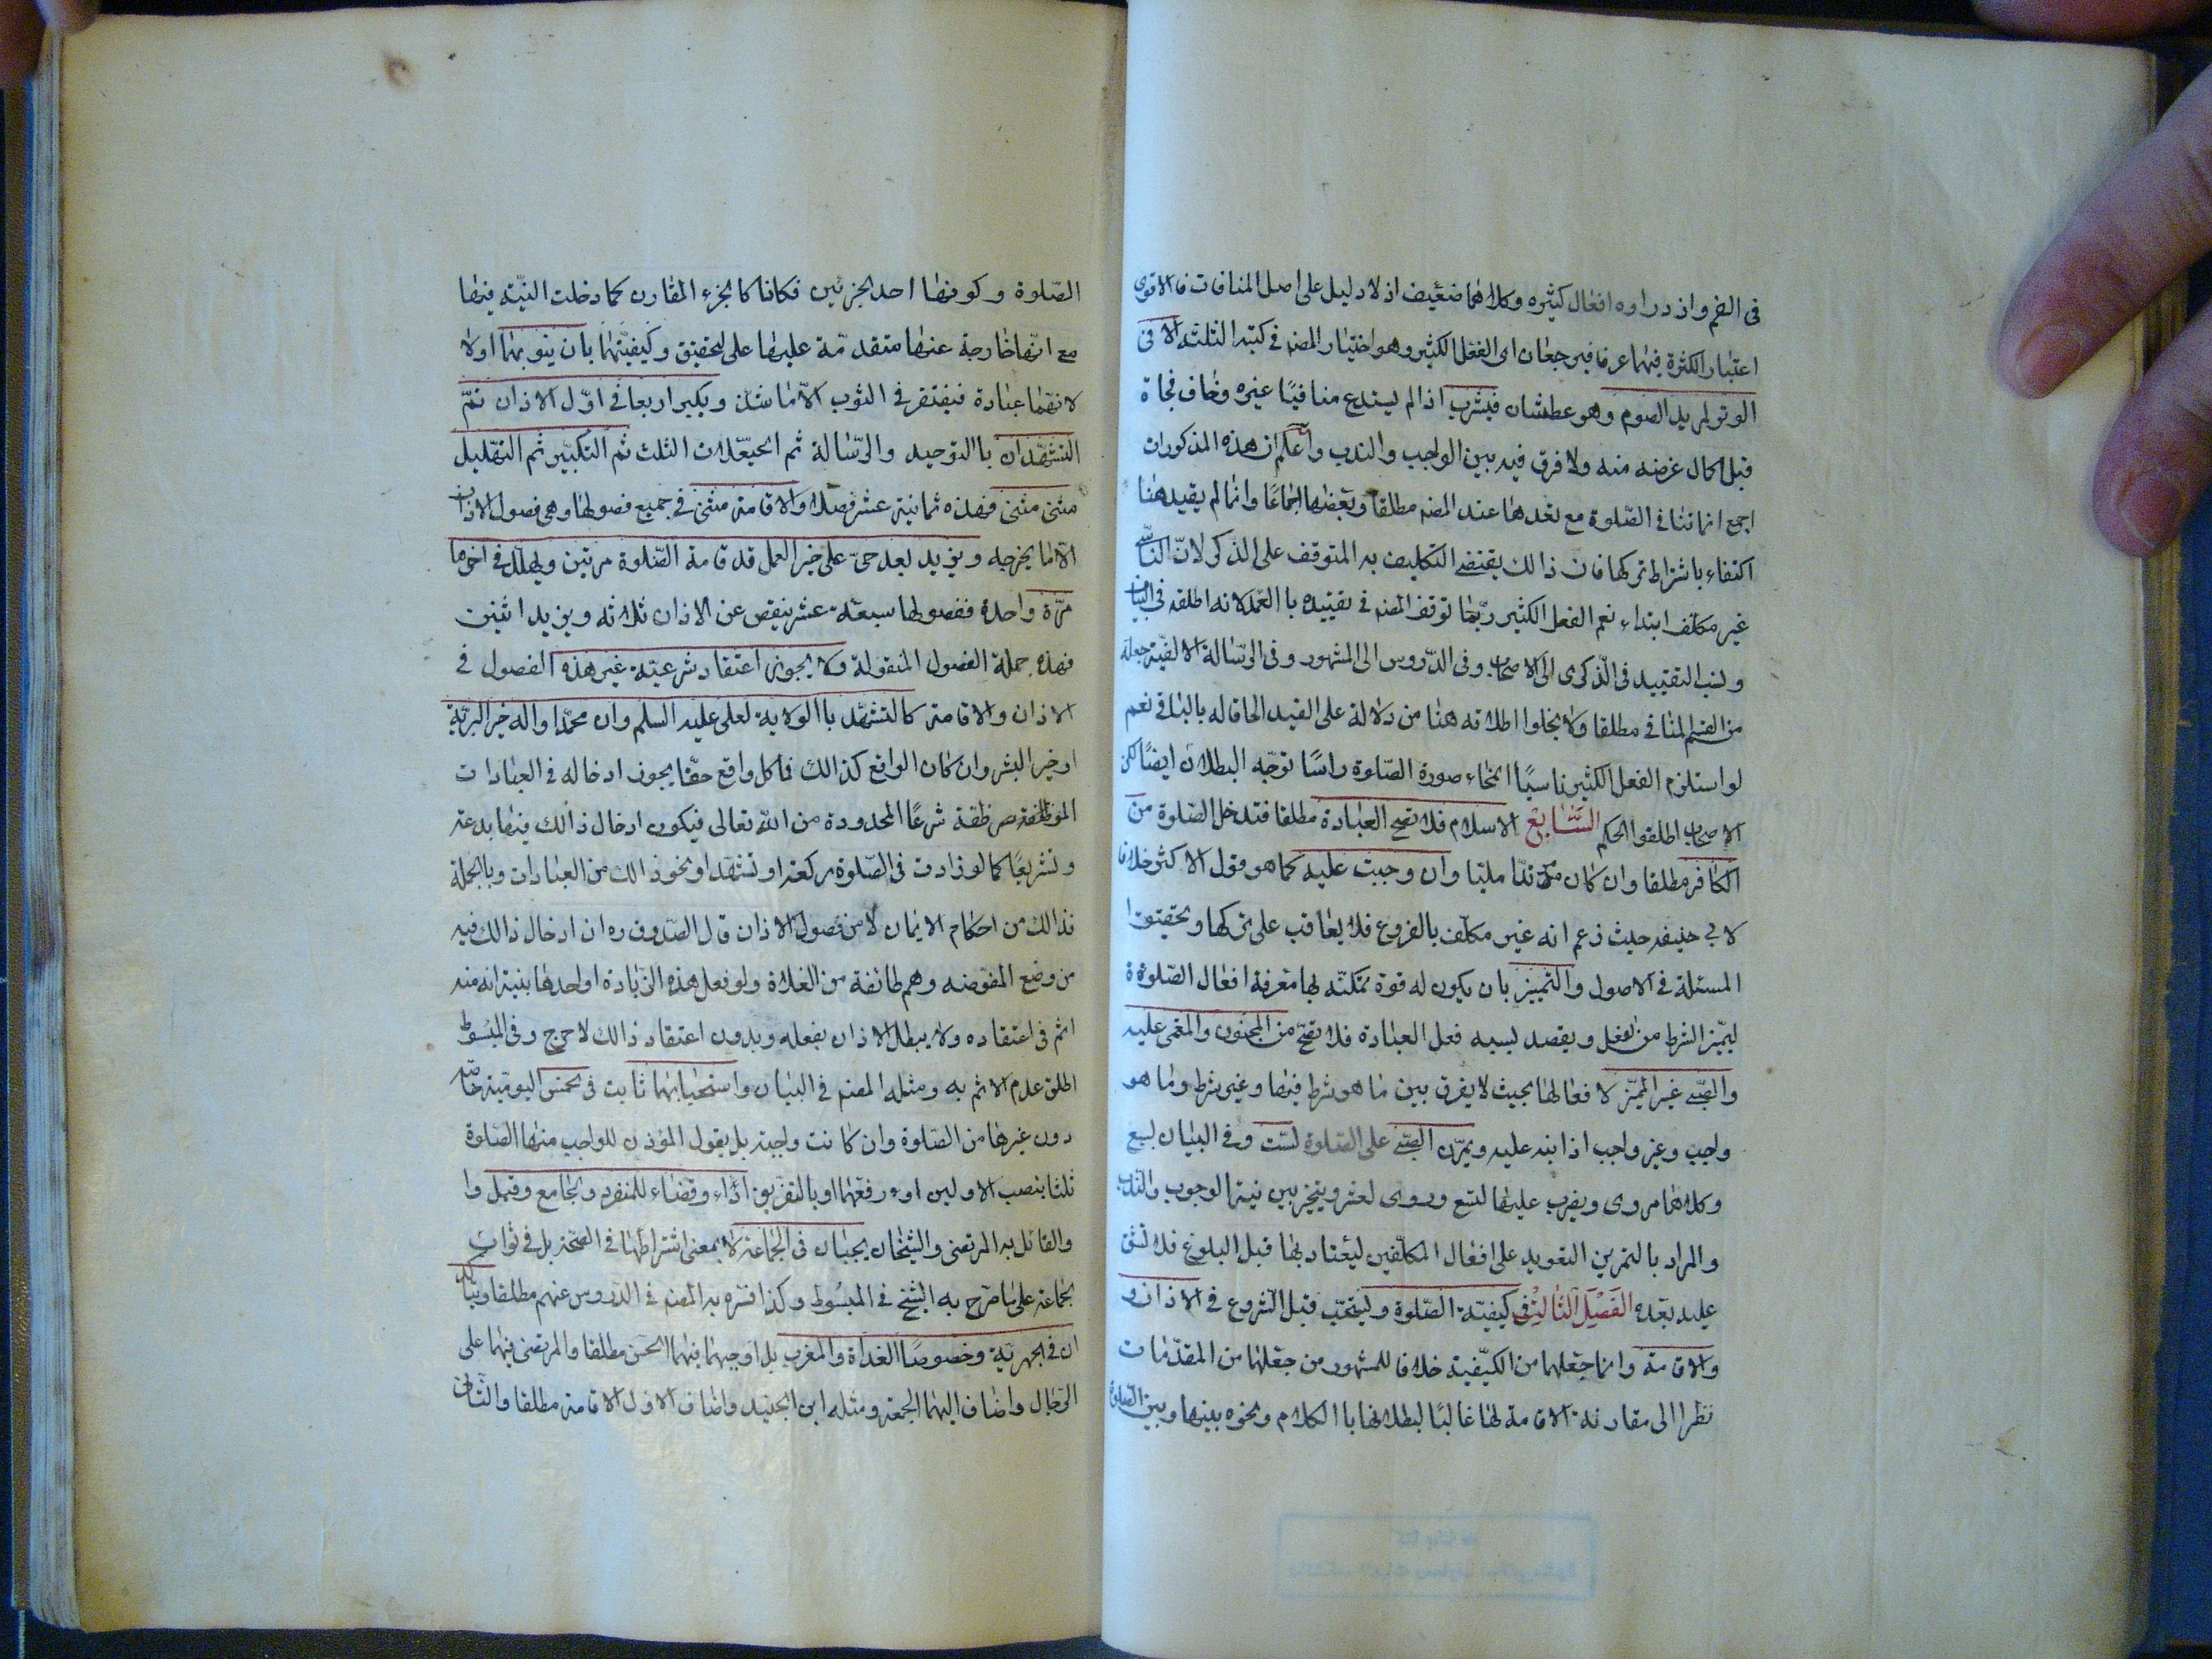 فى الفم واذدراوه افعال كثيره وكلاهما ضعيف اذ لا دليل على اصل المنافات فالاقوى
اعتبار الكثرة فيهما عرفا فيرجعان الى الفعل الكثير وهو اختيار المصنم فى كتبه الثلثة الا فى
الوتر لمريد الصوم وهو عطشان فيشرب اذا لم يستدع منافيًا غيره وخاف فجاة
قبل اكمال غرضه منه ولا فرق فيه بين الواجب والندب واعلم ان هذه المذكورات
اجمع انما تنا فى الصّلوة مع تعدها عند المصنم مطلقا وبعضها اجماعًا وانما لم يقيد هنا
اكتفاء باشتراط تركها فان ذالك يقتضى التكليف به المتوقف على الذكر لانّ النّاسى
غير مكلف ابتداء نعم الفعل الكثير ربّما توقف المصنم فى تقييده باالعمد لانه اطلقه فى البيان
ونسب التقييد فى الذّكرى الى الاصحاب وفى الدّروس الى المشهور وفى الرّسالة الالفيّة جعله
من القسم المنافى مطلقا ولا يخلوا اطلاقه هنا من دلالة على القيد الحاقا له بالباقى نعم
لو استلزم الفعل الكثير ناسيًا انمحاء صورة الصّلوة راسًا توجّه البطلان ايضًا لكن
الاصحاب اطلقوا الحكم السَّابِعُ الاسلام فلا تصح العبادة مطلقا فتدخل الصّلوة من
الكافر مطلقا وان كان مرتدّا مليّا وان وجبت عليه كما هو قول الاكثر خلافا
لابى حنيفه حيث زعم انه غير مكلّف بالفروع فلا يعاقب على تركها وتحقيق
المسئلة فى الاصول والتّمييز بان يكون له قوة تمكنّه بها معرفة افعال الصّلوة
ليميّز الشرط من الفعل ويقصد بسببه فعل العبادة فلا تصحّ من المجنون والمغمى عليه
والصّبى غير المميّز لافعالها بحيث لا يفرق بين ما هو شرط فيها وغير شرط وما هو
واجب وغير واجب اذا نبه عليه ويمرّن الصّبى على الصّلوة لستّ وفى البيان لسبع
وكلاهما مروى ويضرب عليها لتسع وروى لعشر ويتخيّر بين نية الوجوب والنّدب
والمراد بالتمرين التعويد على افعال المكلّفين ليعتاد بها قبل البلوغ فلا تشق
عليه بعده الفَصْل الثّالِث فى كيفيّة الصّلوة ويستحبّ قبل الشروع فى الاذان و
والاقامة وانما جعلهما من الكيّفية خلافا للمشهور من جعلهما من المقدّمات
نظرا الى مقارنة الاقامة لها غالبًا لبطلانها باالكلام ونحوه بينها وبين الصّلوة
الصّلوة وكونها احد الجزئين فكانا كالجزء المقارن كما دخلت النيّة فيها
مع انّها خارجة عنها متقدمّة عليها على التحقيق وكيفيّتهما بان ينويهما اولا
لانهما عبادة فيفتقر فى الثوب الّا ما شذّ ويكبر اربعا فى اوّل الاذان ثمّ
التشهّدان باالتوحيد والرّسالة ثم الحيعّلات الثلث ثم التكبّير ثم التهليل
مثنى مثنى فهذه ثمانية عشر فصلا والاقامة مثنى فى جميع فصولها وهى فصول الاذان
الّا ما يخرجه ويزيد بعد حىّ على خير العمل قد قامة الصّلوة مرتين ويهلّل فى اخرها
مرّة واحدة ففصولها سبعة عشر ينقص عن الاذان ثلاثه ويزيد اثنين
فهذه جملة الفصول المنقولة ولا يجوز اعتقاد شرعيّة غير هذه الفصول فى
الاذان والاقامة كالتشهّد باالولاية لعلى عليه السلم وان محمّدا واله خير البريّة
او خير البشر وان كان الواقع كذالك فما كل واقع حقّا يجوز ادخاله فى العبادات
الموظّفة شرعًا المحدودة من اللّه تعالى فيكون ادخال ذالك فيها بدعة
وتشريعًا كما لو زادت فى الصّلوة ركعة او تشهد او نحو ذالك من العبادات وبالجملة
فذالك من احكام الايمان لا من فصول الاذان قال الصّدوق ره ان ادخال ذالك فيه
من وضع المفوّضه وهم طائفة من الغلاة ولو فعل هذه الزّيادة او احدها بنية انه منه
اثم فى اعتقاده ولا يبطل الاذان بفعله وبدون اعتقاد ذالك لا حرج وفى المبسُوط
اطلق عدم الاثم به ومثله المصنم فى البيان واستحبابهما ثابت فى الخمس اليوميّة خاصّه
دون غيرها من الصّلوة وان كانت واجبة بل يقول المؤذن للواجب منها الصّلوة
ثلثا بنصب الاولين او رفعهما او بالتفريق اداء وقضاء للمنفرد والجامع وقيل وا
والقائل به المرتضى والشّيخان يجبان فى الجماعة لا بمعنى اشتراطهما فى الصّحة بل فى ثواب
الجماعة على ما صرّح به الشّيخ فى المبسُوط وكذا فسّره به المصنم فى الدّروس عنهم مطلقا ويتاكد
ان فى الجهريّة وخصوصًا الغداة والمغرب بل اوجبهما فيهما الحسن مطلقا والمرتضى فيهما على
الرّجال واضاف اليهما الجمعة ومثله ابن الجنيد واضاف الاول الاقامة مطلقا والثّانى